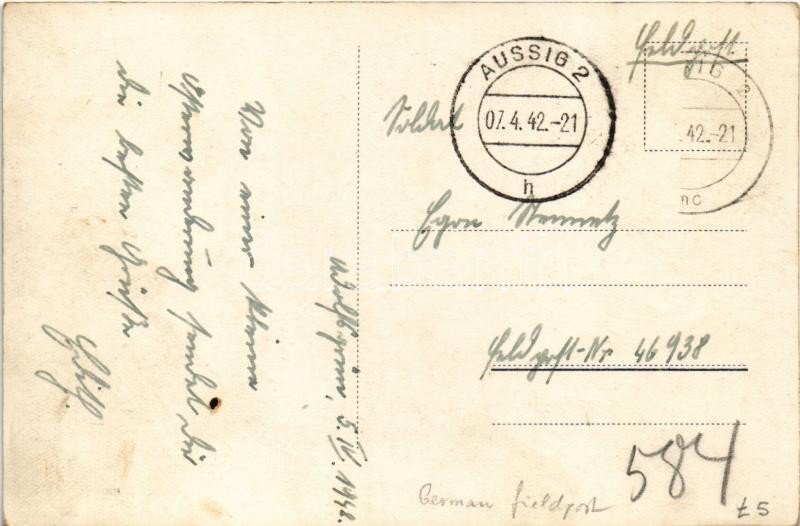 Feldpost
AUSSIG 2
07.4.42.-21
h
IG 2
.42.-21
Soldat
Egon Steinmetz
Feldpost-Nr 46938
5.IV.1942.
Von einer kleinen
sendet dir
die besten Grüße
Edith.
584
German fieldpost
£5